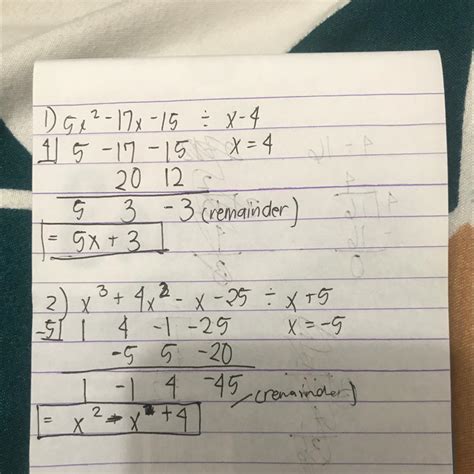 1) 5x²-17x-15 ÷ x-4
4| 5 -17 -15 x = 4
20 12
5 3 -3 (remainder)
= 5x + 3
2) x³ + 4x² - x - 25 ÷ x + 5
-5| 1 4 -1 -25 x = -5
-5 5 -20
1 -1 4 -45 (remainder)
= x² - x + 4